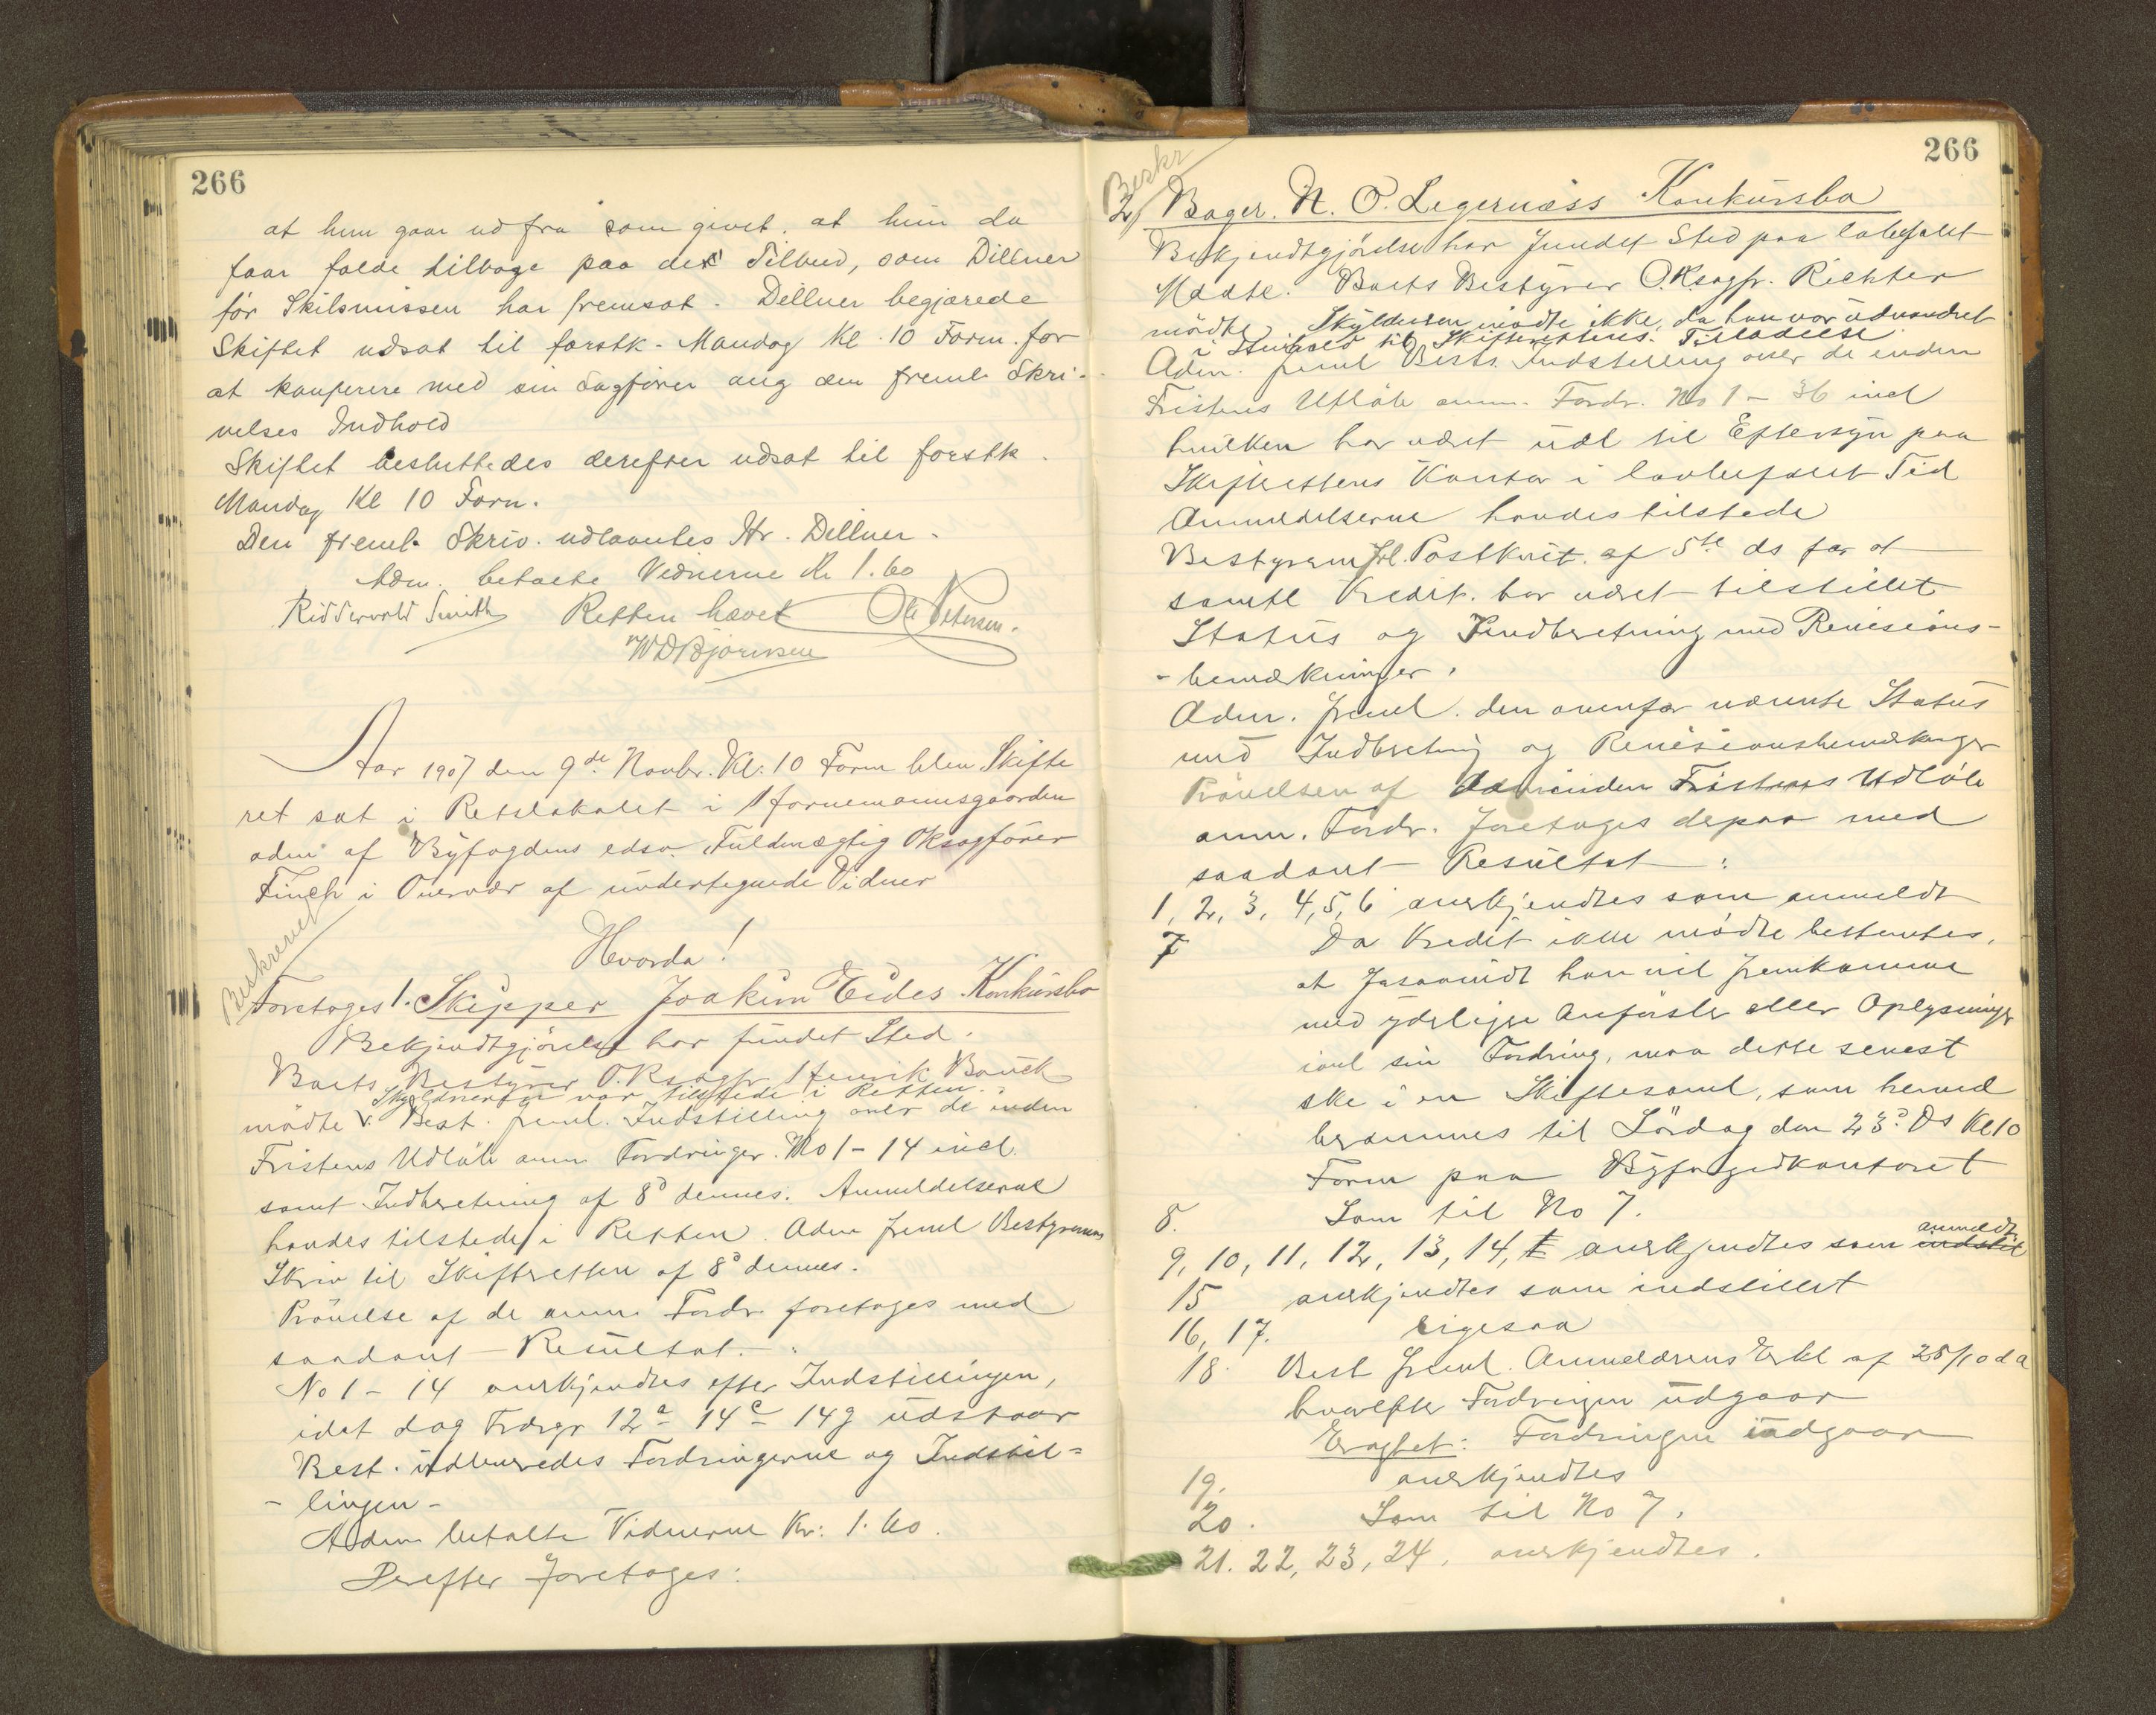 266
at hun gaar ud fra som givet, at hun da
faar falde tilbage paa det Tilbud, som Dillner
før Skilsmissen har fremsat. Dillner begjærede
Skiftet udsat til førstk. Mandag Kl. 10 Form. for
at konferere med sin Sagfører ang den freml. Skri-
velses Indhold
Skiftet besluttedes derefter udsat til førstk.
Mandag Kl 10 Form.
Den freml. Skriv. udlaantes Hr. Dillner.
Adm. betalte Vidnerne Kr 1.60
Ridderwold Smith Retten hævet Ole Petersen.
W D Bjørnsen
Aar 1907 den 9de Novbr. Kl: 10 Form blev Skifte
ret sat i Retslokalet i Hornemannsgaarden
adm af Byfogdens edsv. Fuldmægtig Oksagfører
Finch i Overvær af undertegnede Vidner
Hvorda!
Beskrevet
Foretoges 1. Skipper Joakim Eides Konkursbo
Bekjendtgjørelse har fundet Sted.
Boets Bestyrer O.Rsagfr Henrik Bauck
Skyldneren var tilstede i Retten.
mødte v. Best. freml. Indstilling over de inden
Fristens Udløb anm Fordringer No 1 - 14 incl.
samt Indberetning af 8d dennes. Anmeldelserne
havdes tilstede i Retten. Adm freml Bestyrerens
Skriv til Skifteretten af 8d dennes.
Prøvelse af de anm. Fordr. foretoges med
saadant Resultat.:
No 1 - 14 anerkjendtes efter Indstillingen,
idet dog Fordrgr 12a 14c 14g udstaar
Best. idleveredes Fordringerne og Indstil=
- lingen -
Adm betalte Vidnerne Kr: 1.60.
Derefter foretoges:
266
Beskr
2) Bager N. O. Legernæss Konkursbo
Bekjendtgjørelse har fundet Sted paa lovbefalet
Maate. Boets Bestyrer O.Rsagfr. Richter
mødte. Skyldneren mødte ikke, da han var udvandret
i Henhold til Skifterettens Tilladelse
Adm. freml Bests. Indstilling over de inden
Fristens Udløb anm. Fordr. No 1 - 36 incl
hvilken har været udl til Eftersyn paa
Skifterettens Kontor i lovbefalet Tid
Anmeldelserne havdes tilstede
Bestyreren frl. Postkvit. af 5te ds for at
samtl Kredit. har været tilstillet
Status og Indberetning med Revisions-
- bemærkninger.
Adm. freml. den ovenfor nævnte Status
med Indbretning og Revisionsbemærkninger
Prøvelsen af de inden Fristens Udløb
anm. Fordr. foretoges depaa med
saadant Resultat:
1, 2, 3, 4, 5, 6 anerkjendtes som anmeldt
7 Da Kredit ikke mødte bestemtes,
at forsaavidt han vil fremkomme
med yderligere Anførsler eller Oplysninger
ianl sin Fordring, maa dette senest
ske i en Skiftesaml, som herved
berammes til Lördag den 23d Ds Kl 10
Form paa Byfogedkontoret
8. Som til No 7.
9, 10, 11, 12, 13, 14, anerkjendtes som indstil anmeldt
15 anerkjendtes som indstillet
16, 17. Ligesaa
18. Best freml. Anmelderens Erkl af 25/10 d a
hvorefter Fordringen udgaar
Eragtet: Fordringen udgaar
19. anerkjendtes
20. Som til No 7.
21. 22, 23, 24. anerkjendtes.